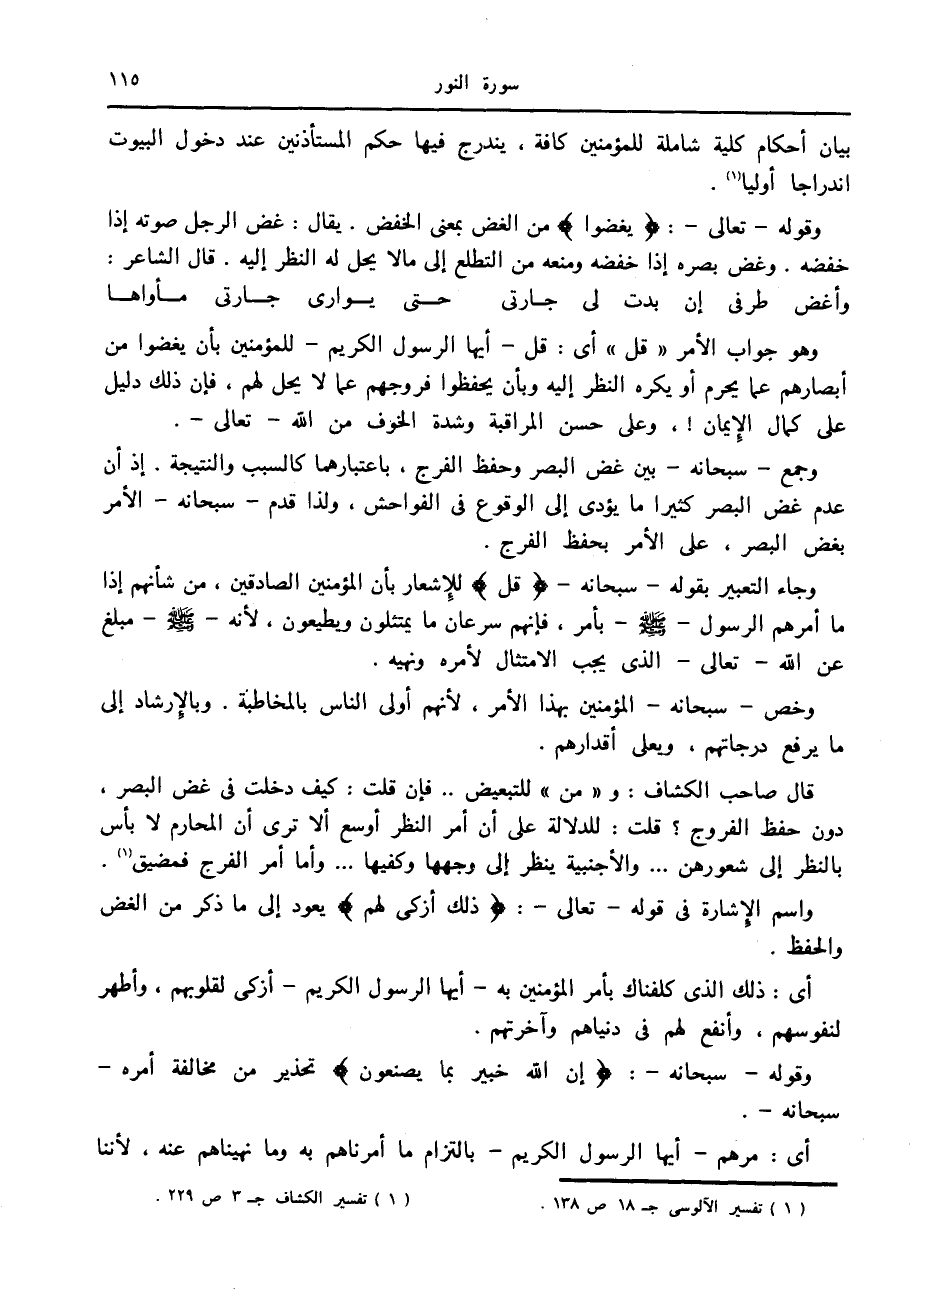 سورة النور
١١٥
بيان أحكام كلية شاملة للمؤمنين كافة ، يندرج فيها حكم المستأذنين عند دخول البيوت
اندراجا أوليا(١) .
وقوله – تعالى – : ﴿ يغضوا ﴾ من الغض بمعنى الخفض . يقال : غض الرجل صوته إذا
خفضه . وغض بصره إذا خفضه ومنعه من التطلع إلى مالا يحل له النظر إليه . قال الشاعر :
وأغض طرفى إن بدت لى جارتى حتى يوارى جارتى مأواها
وهو جواب الأمر « قل » أى : قل – أيها الرسول الكريم – للمؤمنين بأن يغضوا من
أبصارهم عما يحرم أو يكره النظر إليه وبأن يحفظوا فروجهم عما لا يحل لهم ، فإن ذلك دليل
على كمال الإيمان ! ، وعلى حسن المراقبة وشدة الخوف من الله – تعالى – .
وجمع – سبحانه – بين غض البصر وحفظ الفرج ، باعتبارهما كالسبب والنتيجة . إذ أن
عدم غض البصر كثيرا ما يؤدى إلى الوقوع فى الفواحش ، ولذا قدم – سبحانه – الأمر
بغض البصر ، على الأمر بحفظ الفرج .
وجاء التعبير بقوله – سبحانه – ﴿ قل ﴾ للإشعار بأن المؤمنين الصادقين ، من شأنهم إذا
ما أمرهم الرسول – ﷺ – بأمر ، فإنهم سرعان ما يمتثلون ويطيعون ، لأنه – ﷺ – مبلغ
عن الله – تعالى – الذى يجب الامتثال لأمره ونهيه .
وخص – سبحانه – المؤمنين بهذا الأمر ، لأنهم أولى الناس بالمخاطبة . وبالإرشاد إلى
ما يرفع درجاتهم ، ويعلى أقدارهم .
قال صاحب الكشاف : و « من » للتبعيض .. فإن قلت : كيف دخلت فى غض البصر ،
دون حفظ الفروج ؟ قلت : للدلالة على أن أمر النظر أوسع ألا ترى أن المحارم لا بأس
بالنظر إلى شعورهن ... والأجنبية ينظر إلى وجهها وكفيها ... وأما أمر الفرج فمضيق(١) .
واسم الإشارة فى قوله – تعالى – : ﴿ ذلك أزكى لهم ﴾ يعود إلى ما ذكر من الغض
والحفظ .
أى : ذلك الذى كلفناك بأمر المؤمنين به – أيها الرسول الكريم – أزكى لقلوبهم ، وأطهر
لنفوسهم ، وأنفع لهم فى دنياهم وآخرتهم .
وقوله – سبحانه – : ﴿ إن الله خبير بما يصنعون ﴾ تحذير من مخالفة أمره –
سبحانه – .
أى : مرهم – أيها الرسول الكريم – بالتزام ما أمرناهم به وما نهيناهم عنه ، لأننا
( ١ ) تفسير الآلوسى جـ ١٨ ص ١٣٨ .
( ١ ) تفسير الكشاف جـ ٣ ص ٢٢٩ .